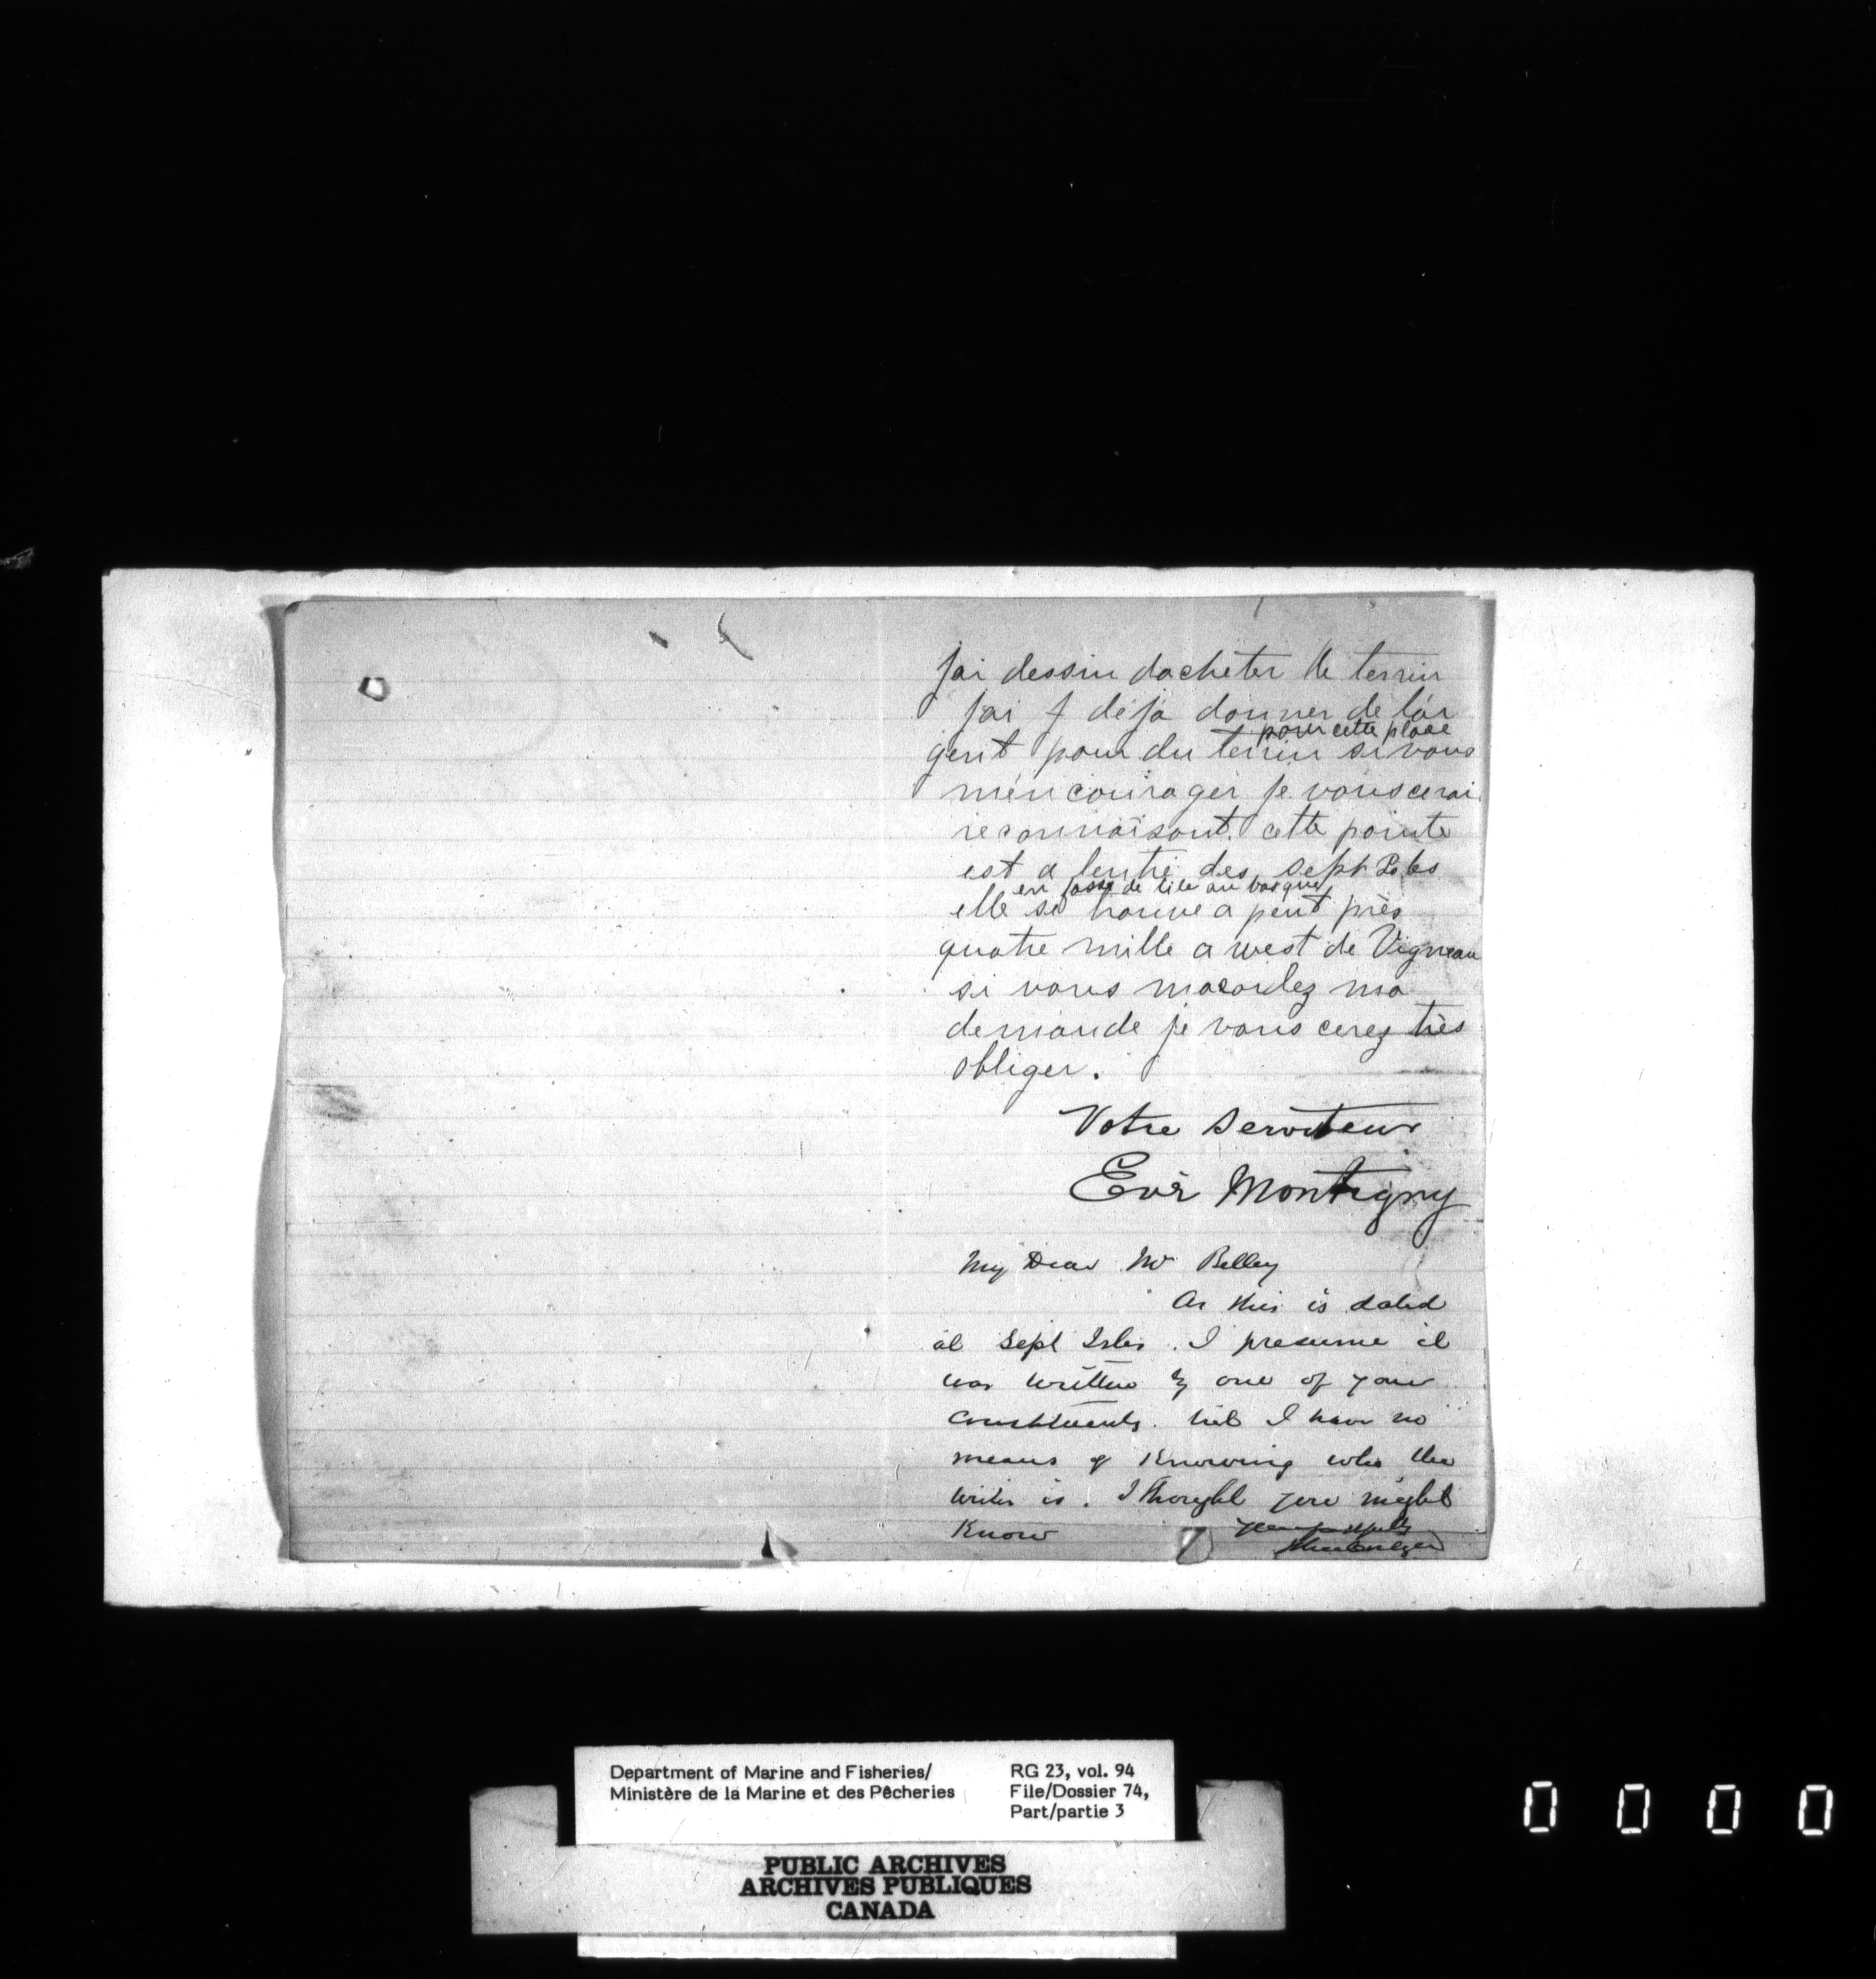 jai dessin dacheter le terrin
jai déja donner de l'ar
pour cette place
gent pour du terrin si vous
m'encourager je vous cerai
reconnaisant. cette pointe
est a lentré des sept Iles
en fasse de l'ile au basque
elle se trouve a peut près
quatre mille a west de Vigneau
si vous macordez ma
demande je vous cerez très
obliger.
Votre serviteur
Evr Montigny
My Dear Mr Belley
As this is dated
at Sept Isles. I presume it
was written by one of your
constituents. but I have no
means of knowing who the
writer is. I thought you might
know
Department of Marine and Fisheries/
Ministère de la Marine et des Pêcheries
RG 23, vol. 94
File/Dossier 74,
Part/partie 3
PUBLIC ARCHIVES
ARCHIVES PUBLIQUES
CANADA
0 0 0 0